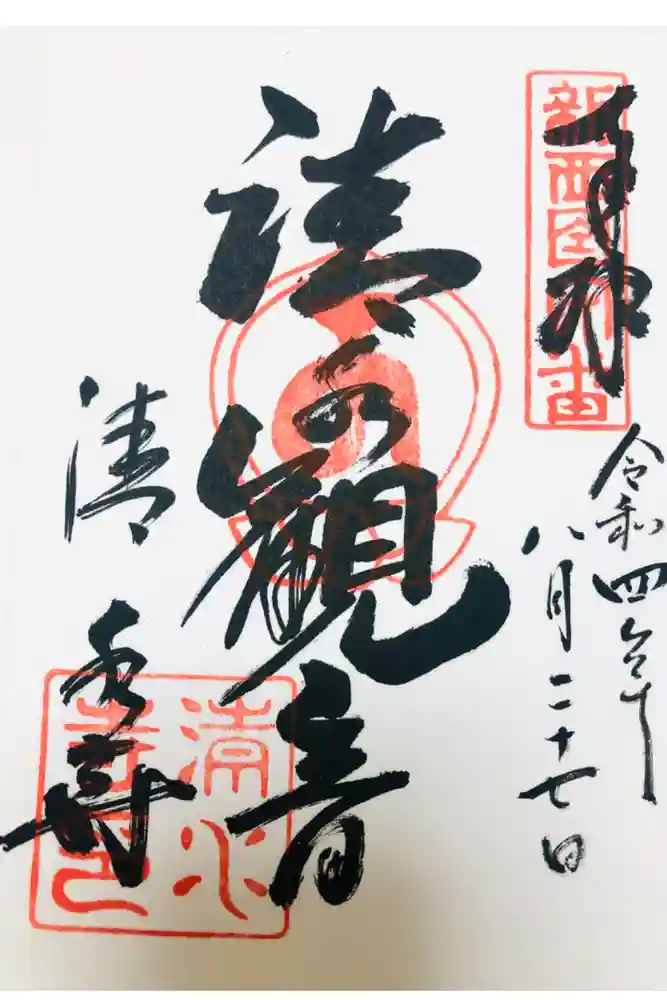 奉拝
新西国
令和四年
八月二十七日
の観音
清水寺
清水寺印